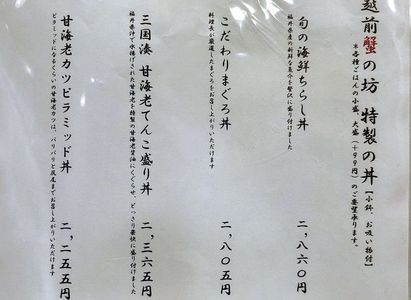 越前蟹の坊 特製の丼【小鉢、お吸い物付】
※各種ごはんの小盛、大盛(+99円)のご要望承ります。
旬の海鮮ちらし丼 二,八六〇円
福井県産の新鮮な魚介を贅沢に盛り付けました
こだわりまぐろ丼 二,八〇五円
料理長が厳選したまぐろをお召し上がりいただけます
三国湊 甘海老てんこ盛り丼 二,三六五円
福井県沖で水揚げされた甘海老を特製の甘海老醤油にくぐらせ、どっさり豪快に盛り付けました
甘海老カツピラミッド丼 二,二五五円
ピラミッドになるくらいの甘海老カツは、パリパリと尻尾までお召し上がりいただけます